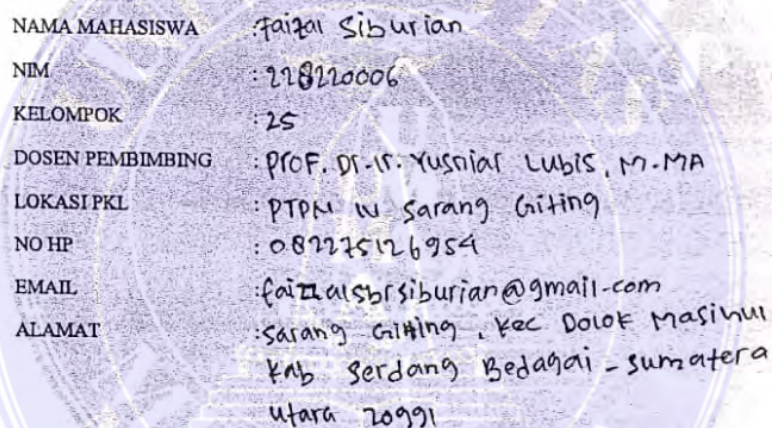 NAMA MAHASISWA : Faizal Siburian
NIM : 228220006
KELOMPOK : 25
DOSEN PEMBIMBING : Prof. Dr. Ir. Yusniar Lubis, M.MA
LOKASI PKL : PTPN IV Sarang Giting
NO HP : 082275126954
EMAIL : faizzalsbrsiburian@gmail.com
ALAMAT : Sarang Gitting, Kec Dolok Masihul
Kab Serdang Bedagai - Sumatera
Utara 20991